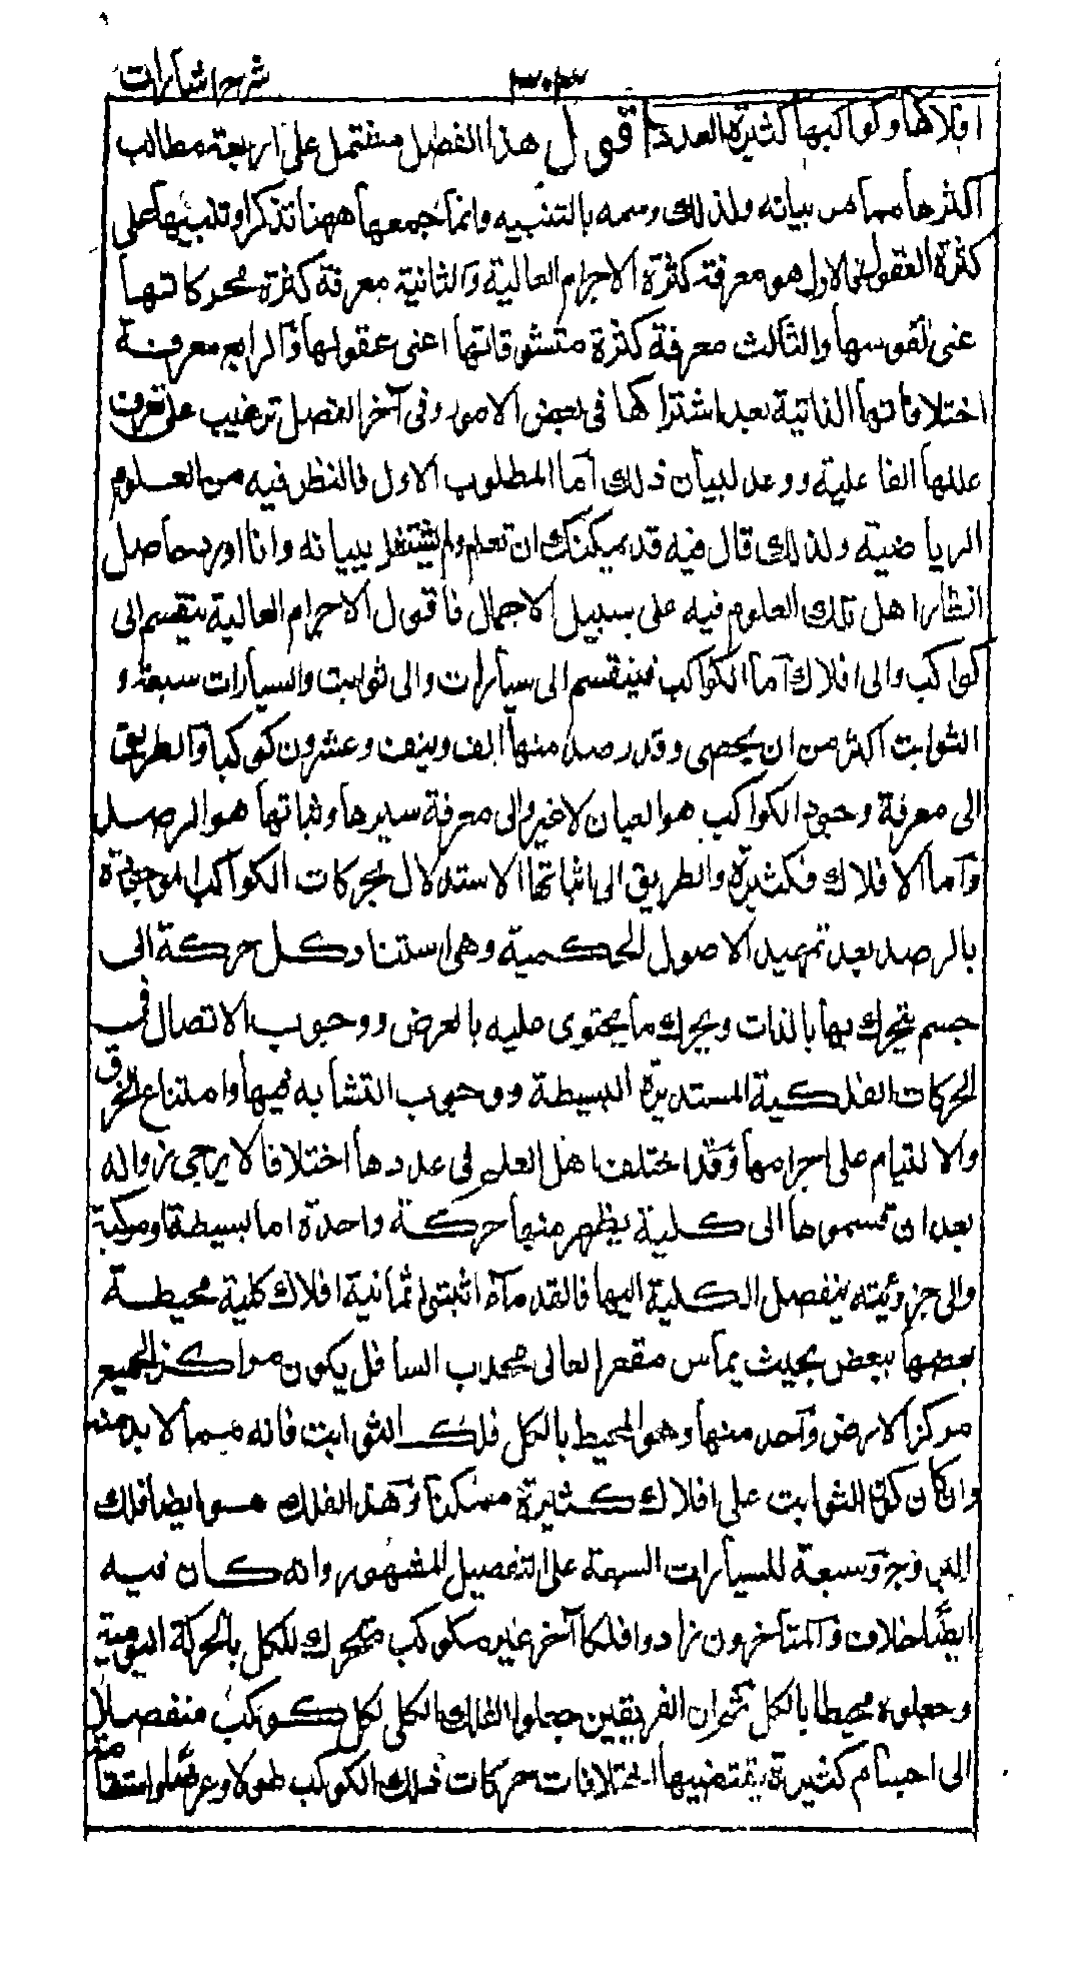 شرح اشارات
٣٠٣
افلاكها وكواكبها كثيرة العدد اقول هذا الفصل مشتمل على اربعة مطالب
اكثرها مما مر بيانه ولذلك وسمه بالتنبيه وانما جمعها ههنا تذكرا وتنبيها على
كثرة العقول فالاول هو معرفة كثرة الاجرام العالية والثانية معرفة كثرة محركاتها
عنى نفوسها والثالث معرفة كثرة متشوقاتها اعنى عقولها والرابع معرفة
اختلافاتها الذاتية بعد اشتراكها فى بعض الامور وفى آخر الفصل ترغيب على تعرف
عللها الفاعلية ووعد لبيان ذلك اما المطلوب الاول فالنظر فيه من العلوم
الرياضية ولذلك قال فيه قد يمكنك ان تعلم ولم يشتغل ببيانه وانا اورد حاصل
انظار اهل تلك العلوم فيه على سبيل الاجمال فاقول الاجرام العالية ينقسم الى
كواكب والى افلاك اما الكواكب فينقسم الى سيارات والى ثوابت والسيارات سبعة و
الثوابت اكثر من ان يحصى وقد رصد منها الف ونيف وعشرون كوكبا والطريق
الى معرفة وجود الكواكب هو العيان لا غير والى معرفة سيرها وثباتها هو الرصد
واما الافلاك فكثيرة والطريق الى اثباتها الاستدلال بحركات الكواكب الموجودة
بالرصد بعد تمهيد الاصول الحكمية وهى استناد كل حركة الى
جسم يتحرك بها بالذات ويحرك ما يحتوى عليه بالعرض ووجوب الاتصال فى
الحركات الفلكية المستديرة البسيطة ووجوب التشابه فيها وامتناع الخرق
والالتيام على اجرامها وقد اختلف اهل العلم فى عددها اختلافا لا يرجى زواله
بعد ان قسموها الى كلية يظهر منها حركة واحدة اما بسيطة او مركبة
والى جزوئيته ينفصل الكلية اليها فالقدماء اثبتوا ثمانية افلاك كلية محيطة
بعضها ببعض بحيث يماس مقعر العالى محدب السافل يكون مراكز الجميع
مركز الارض واحد منها وهو المحيط بالكل فلك الثوابت فانه مما لابد منه
وان كان كون الثوابت على افلاك كثيرة ممكنا وهذا الفلك هو ايضا فلك
البروج وسبعة للسيارات السبعة على التفصيل المشهور وانه كان فيه
ايضا خلاف والمتأخرون زادوا فلكا آخر غير مكوكب متحرك للكل بالحركة اليومية
وجعلوه محيطا بالكل ثم ان الفريقين جعلوا الفلك الكلى لكل كوكب منفصلا
الى اجسام كثيرة يقتضيها اختلافات حركات ذلك الكوكب طولا وعرضا واستقامة